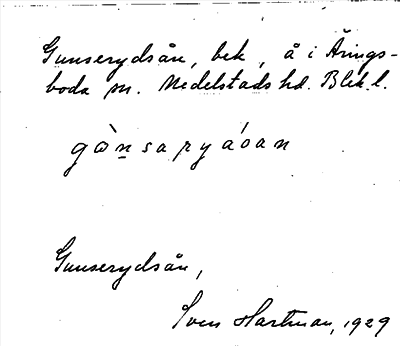 Gunserydsån, bek, å i Årings-
boda sn. Medelstads hd. Blek. l.
gɷ̀n̠saryáoan
Gunserydsån,
Sven Hartman, 1929